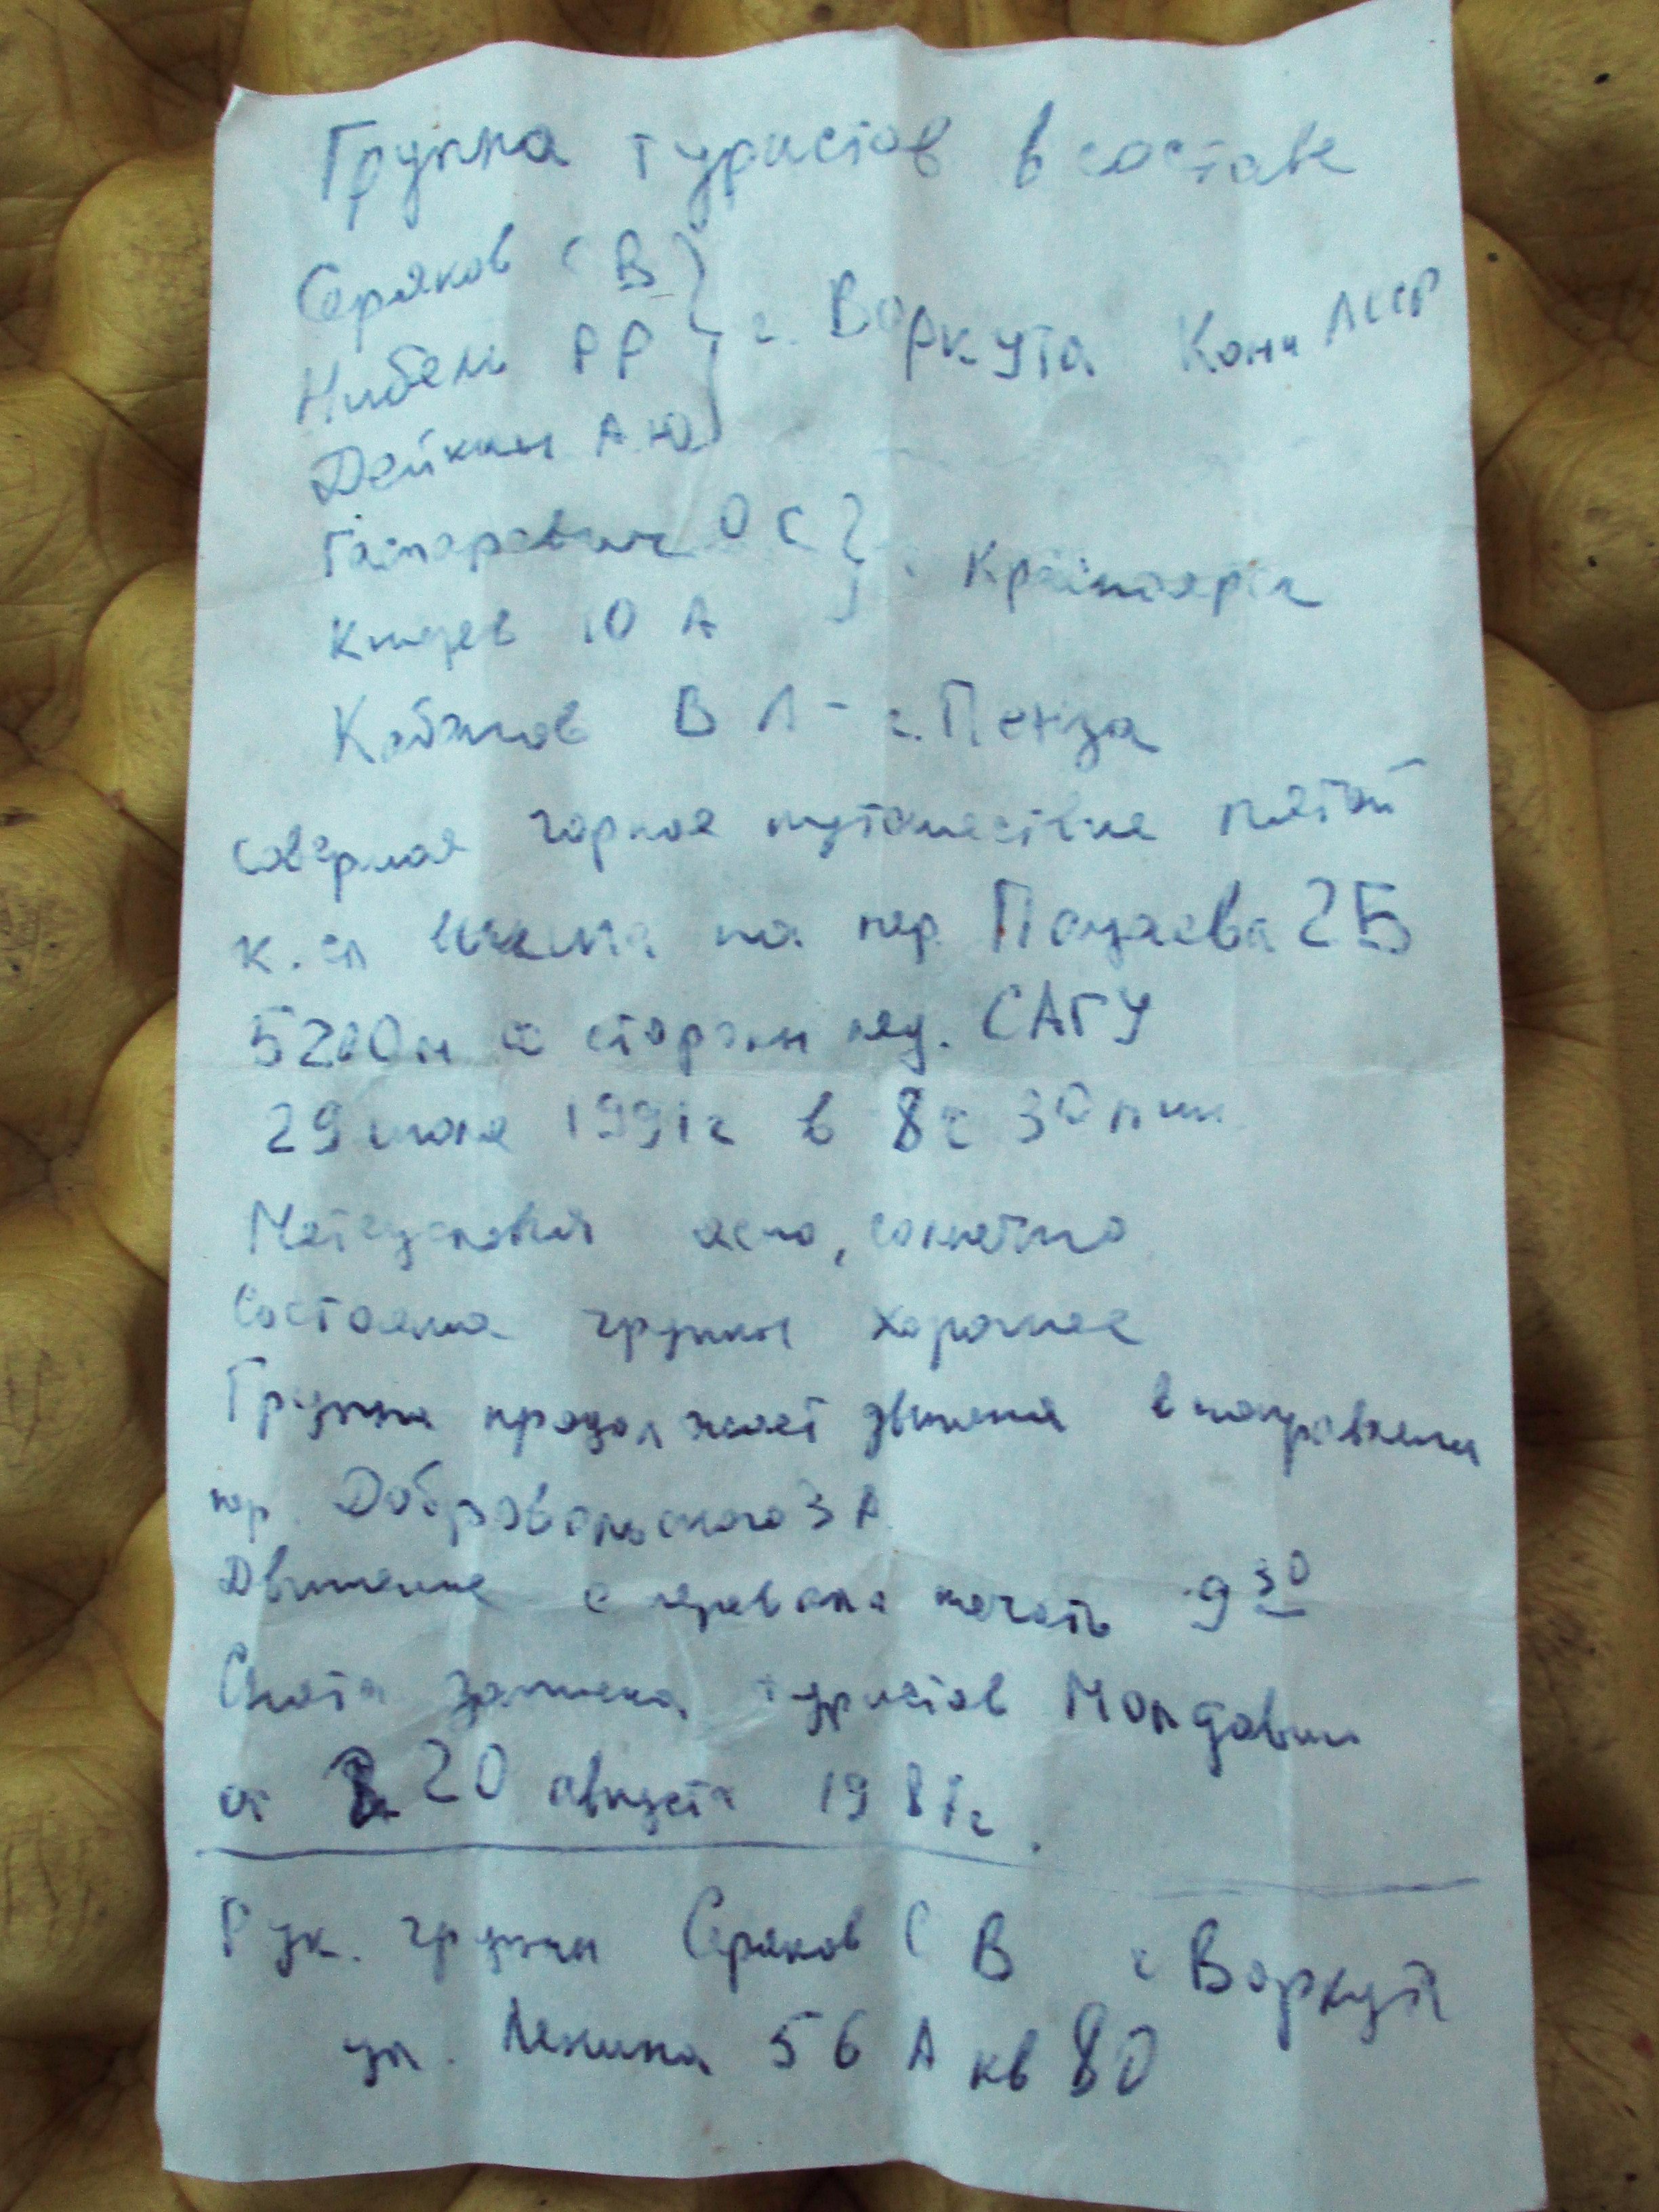 Группа туристов в составе
Серяков С В
Нибень Р Р
Дейкин А Ю
г. Воркута Коми АССР
Гаспарович О С
Князев Ю А
г. Красноярск
В Л - г. Пенза
совершая горное путешествие пятой
к. сл на пер. 2Б
5200м со стороны лед. САГУ
29 июля 1991г в 8ч 30 мин
Метеусловия ясно, солнечно
Состояние группы хорошее
Группа продолжает движение в направлении
пер. Добровольского 3А
Движение с перевала начать 9 30
Снята записка туристов Молдавии
от 20 августа 1981г.
Рук. группы Серяков С В г Воркута
ул. Ленина 56 А кв 80